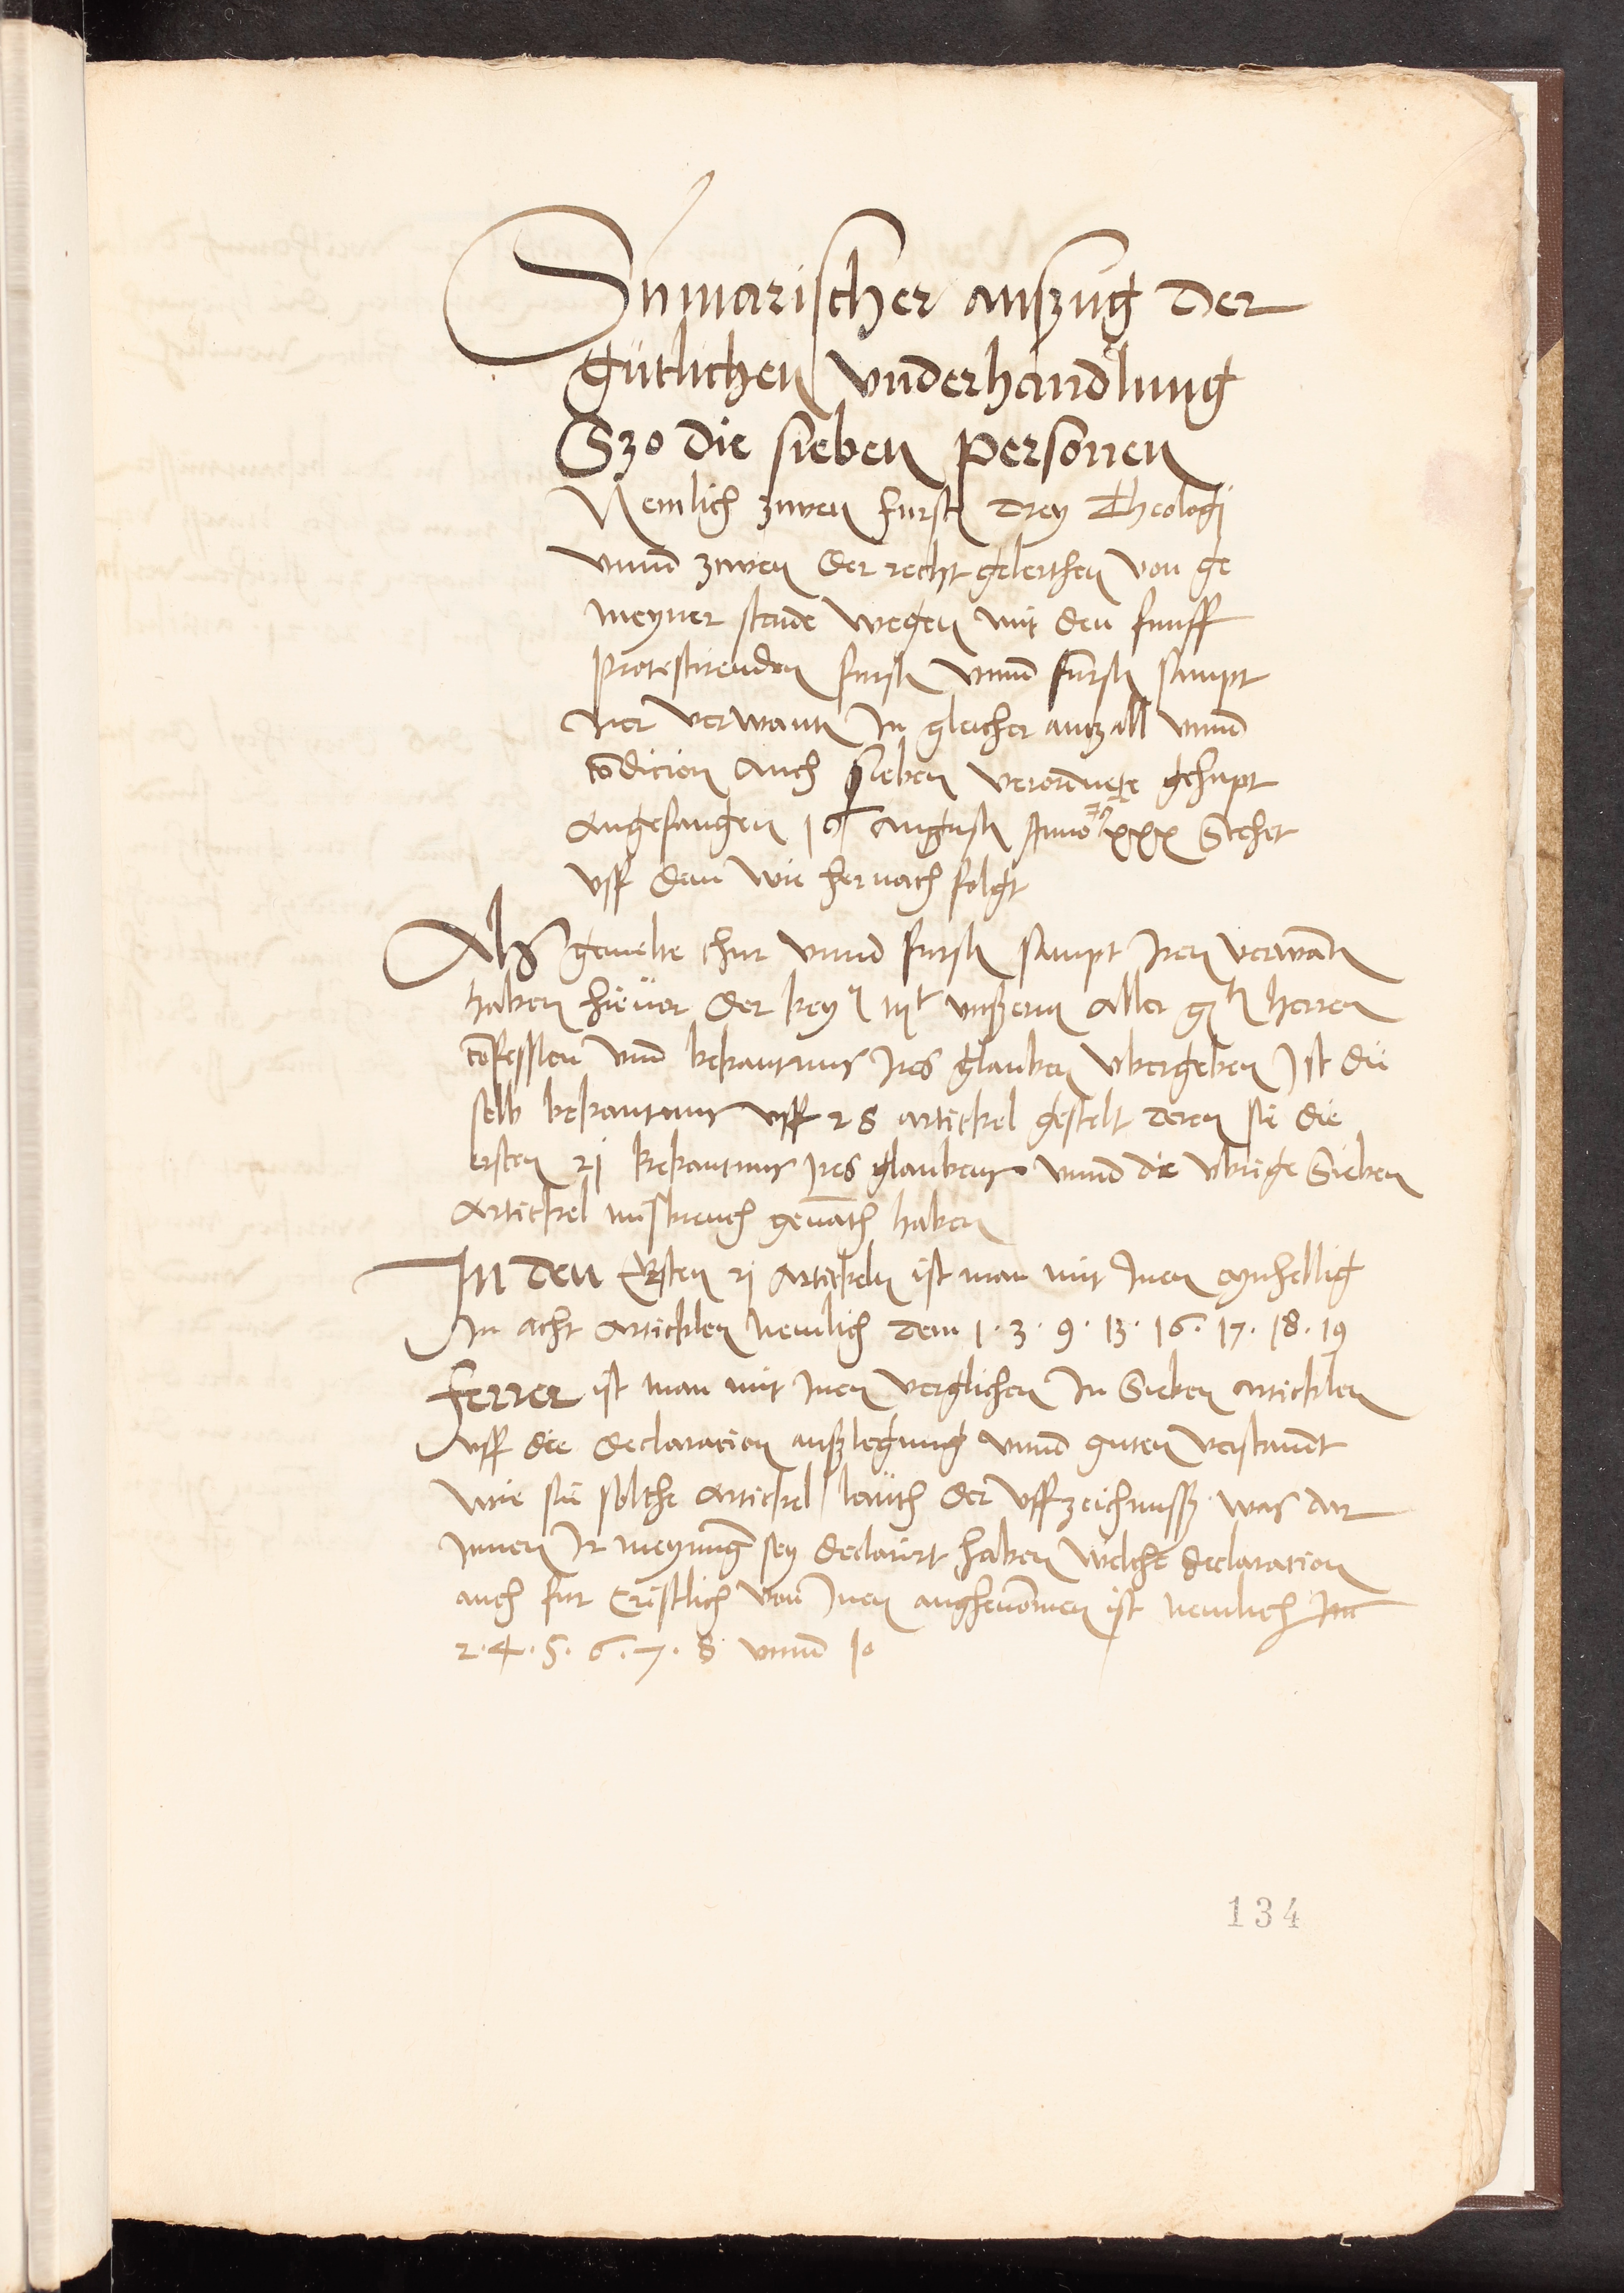 Summarischer auszug der
Gütlichen vnderhandlung
Szo die sieben personen
Nemlich zwen furst drey Theologi
vnnd zwen der recht gelerthen von ge
meyner stende wegen mit den funff
protestirenden fursten vnnd fursten sampt
irer verwanten In gleicher antzall vnnd
condicion auch sieben verordnete gehapt
angefangen 16 augusti Anno xxx Stehet
vff dem wie hernach folgt
Als gemelte chur vnnd fursten sampt Iren verwanten
haben hieuor der key mt vnßerm aller gten herren
confession vnnd bekantnus Ires glauben vbergeben Ist die
selb bekantnus vff 28 artickel gestelt deren sie die
ersten 21 bekantnus Ires glaubens vnnd die vbrige Sieben
Artickel misbreuch genanth haben
In den Ersten 21 Artickeln ist man mit Inen eynhellig
In acht Articklen nemlich dem 1 · 3 · 9 · 13 · 16 · 17 · 18 · 19
Ferrer ist man mit Inen verglichen In Sieben articklen
vff die declaration außlegung vnnd guten verstanndt
wie sie solche Artickel lauth der vffzeichnuß was dar
Innen Ir meynung sey declarirt haben welche declaration
auch fur Cristlich von Inen anghenommen ist nemlich Im
2 · 4 · 5 · 6 · 7 · 8 vnnd 10
134